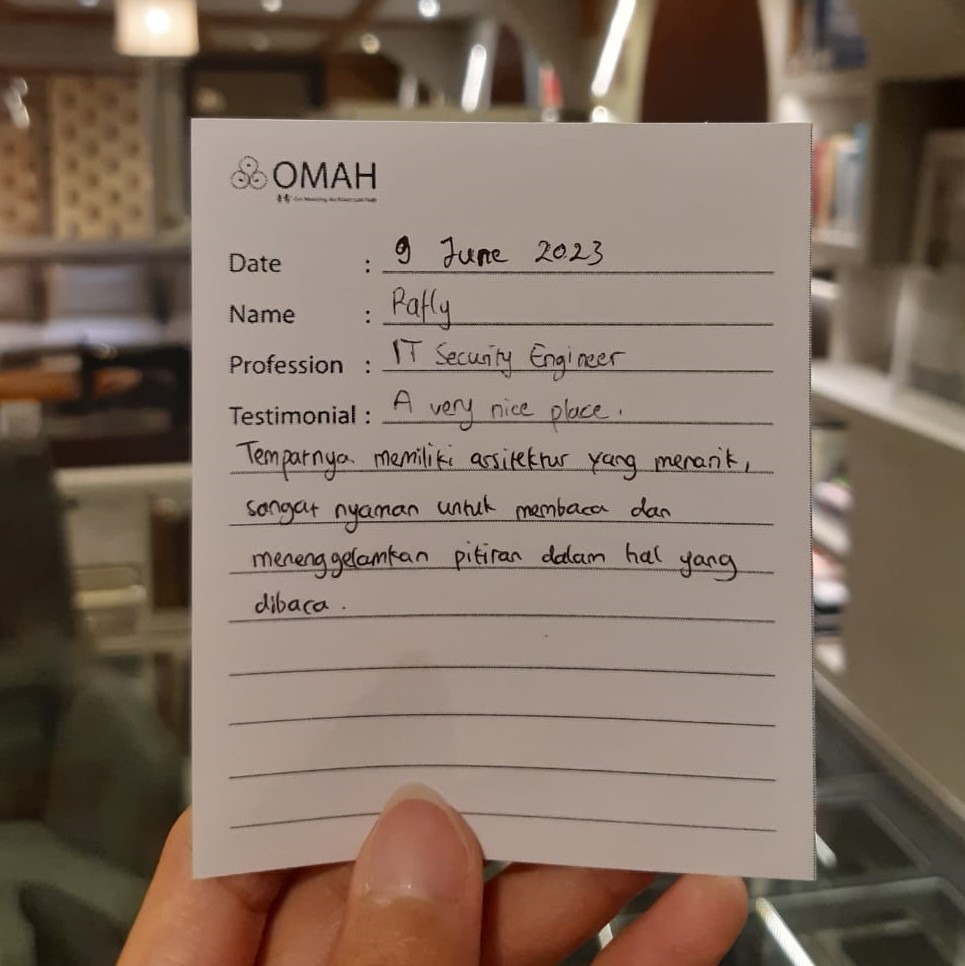 OMAH
Date : 9 June 2023
Name : Rafly
Profession : IT Security Engineer
Testimonial : A very nice place.
Tempatnya memiliki arsitektur yang menarik,
sangat nyaman untuk membaca dan
menenggelamkan pikiran dalam hal yang
dibaca.